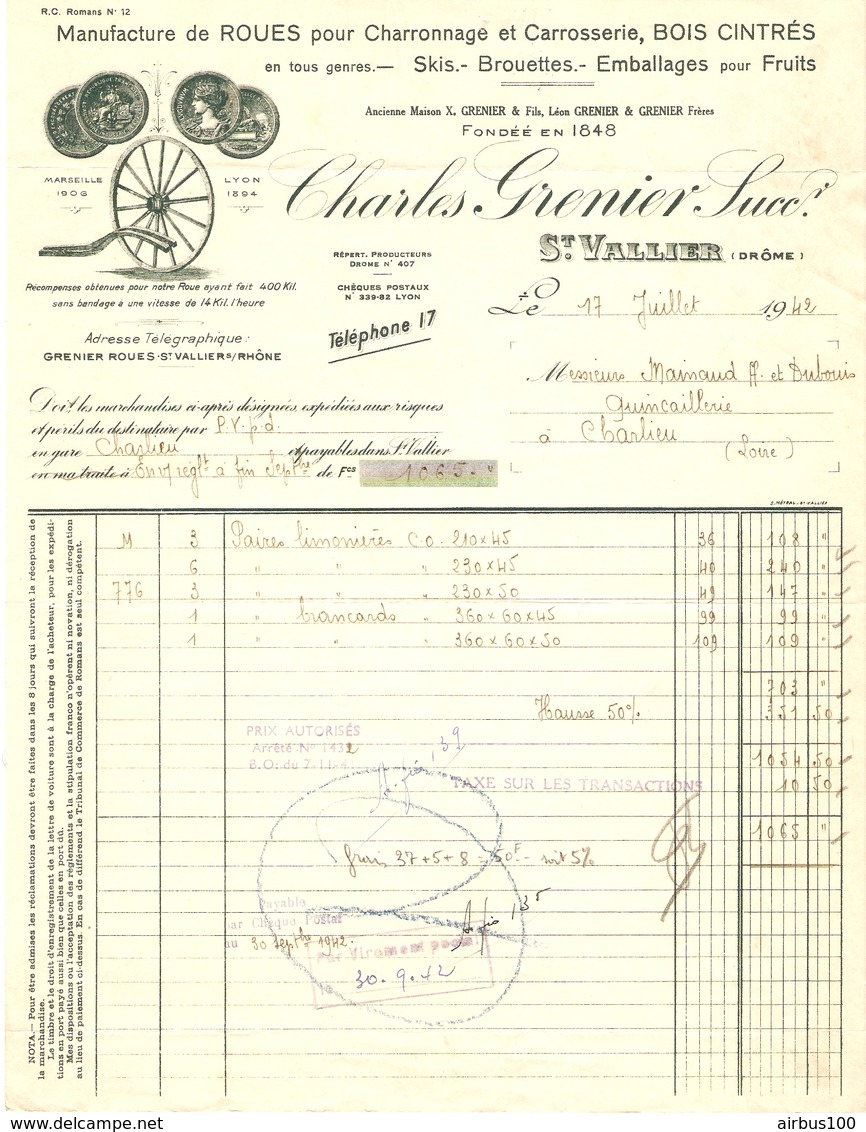 R.C. Romans N° 12
Manufacture de ROUES pour Charronnage et Carrosserie, BOIS CINTRÉS
en tous genres.— Skis.- Brouettes.- Emballages pour Fruits
Ancienne Maison X. GRENIER & Fils, Léon GRENIER & GRENIER Frères
FONDÉE EN 1848
MARSEILLE
1906
LYON
1894
Charles Grenier Succr.
ST. VALLIER (DRÔME)
RÉPERT. PRODUCTEURS
DROME N° 407
CHÈQUES POSTAUX
N° 339-82 LYON
Téléphone 17
Récompenses obtenues pour notre Roue ayant fait 400 Kil.
sans bandage a une vitesse de 14 Kil. l'heure
Adresse Télégraphique :
GRENIER ROUES·ST VALLIER S/RHÔNE
Le 17 Juillet 1942
Messieurs Mainaud et Dubouis
Quincaillerie
à Charlieu
(Loire)
Doit les marchandises ci-après désignées, expédiées aux risques
et périls du destinataire par P.V.p.d.
en gare Charlieu et payables dans St Vallier
en ma traite à fin Septbre de Fcs 1065.- "
M 3 Paires limonières C.O. 210 x 45 36 108 "
6 " " " 230 x 45 40 240 "
776 3 " " " 230 x 50 49 147 "
1 " brancards " 360 x 60 x 45 99 99 "
1 " " " 360 x 60 x 50 109 109 "
703 "
Hausse 50% 351 50
PRIX AUTORISÉS
Arrêté N° 1432
B.O. du 7-11-41
1054 50
TAXE SUR LES TRANSACTIONS 10 50
1065 "
frais 37+5+8 = 50F - soit 5%
Payable
par Chèque Postal
au 30 Septbre 1942.
Par Virement postal
30.9.42
NOTA.— Pour être admises les réclamations devront être faites dans les 8 jours qui suivront la réception de
la marchandise.
Le timbre et le droit d'enregistrement de la lettre de voiture sont à la charge de l'acheteur, pour les expédi-
tions en port payé aussi bien que celles en port dû.
Mes dispositions ou l'acceptation des règlements et la stipulation franco n'opèrent ni novation, ni dérogation
au lieu de paiement ci-dessus. En cas de différend le Tribunal de Commerce de Romans est seul compétent.
delcampe.net
airbus100